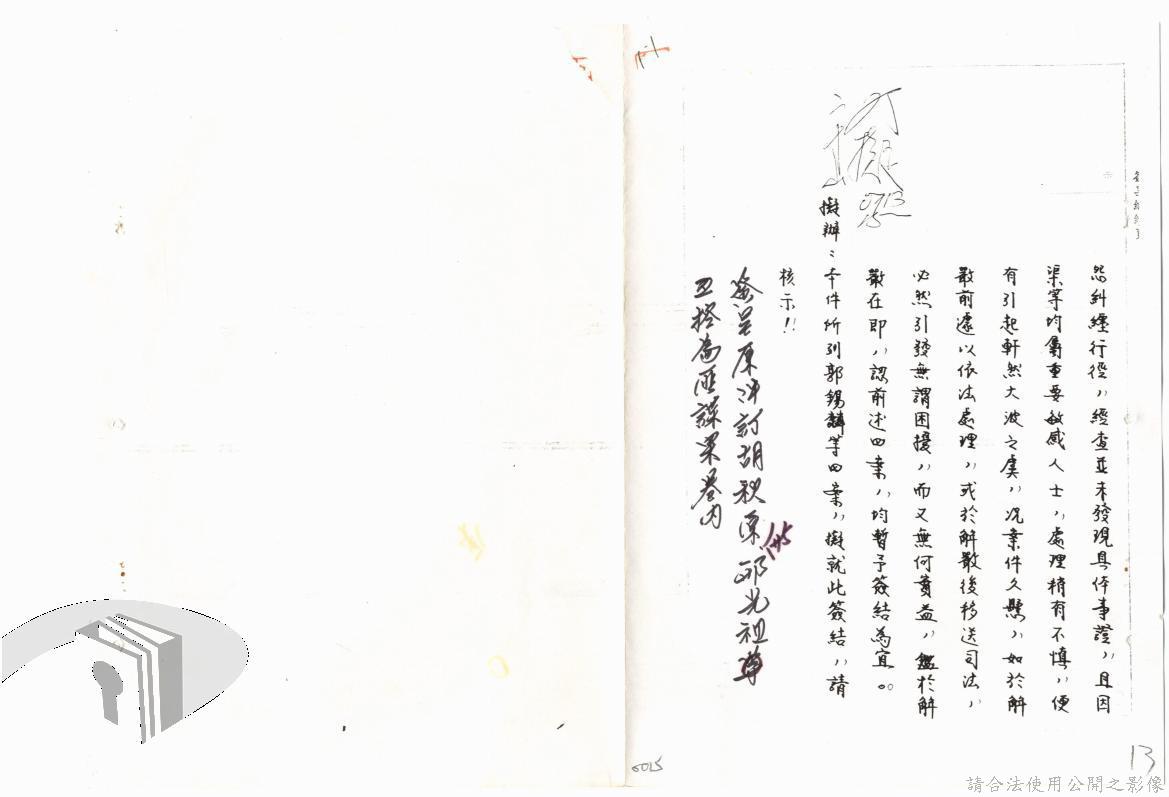 怨糾纏行徑,,經查並未發現具体事證,,且因
渠等均屬重要敏感人士,,處理稍有不慎,,便
有引起軒然大波之虞,,况案件久懸,,如於解
散前遽以依法處理,,或於解散後移送司法,,
必然引發無謂困擾,,而又無何實益,,鑑於解
散在即,,認前述四案,,均暫予簽結為宜。
擬辦:本件所列郭錫麟等四案,,擬就此簽結,,請
核示!!
可
0713
15
原件訂胡秋原 邱光祖
為匪諜案卷內
13
0015
請合法使用公開之影像